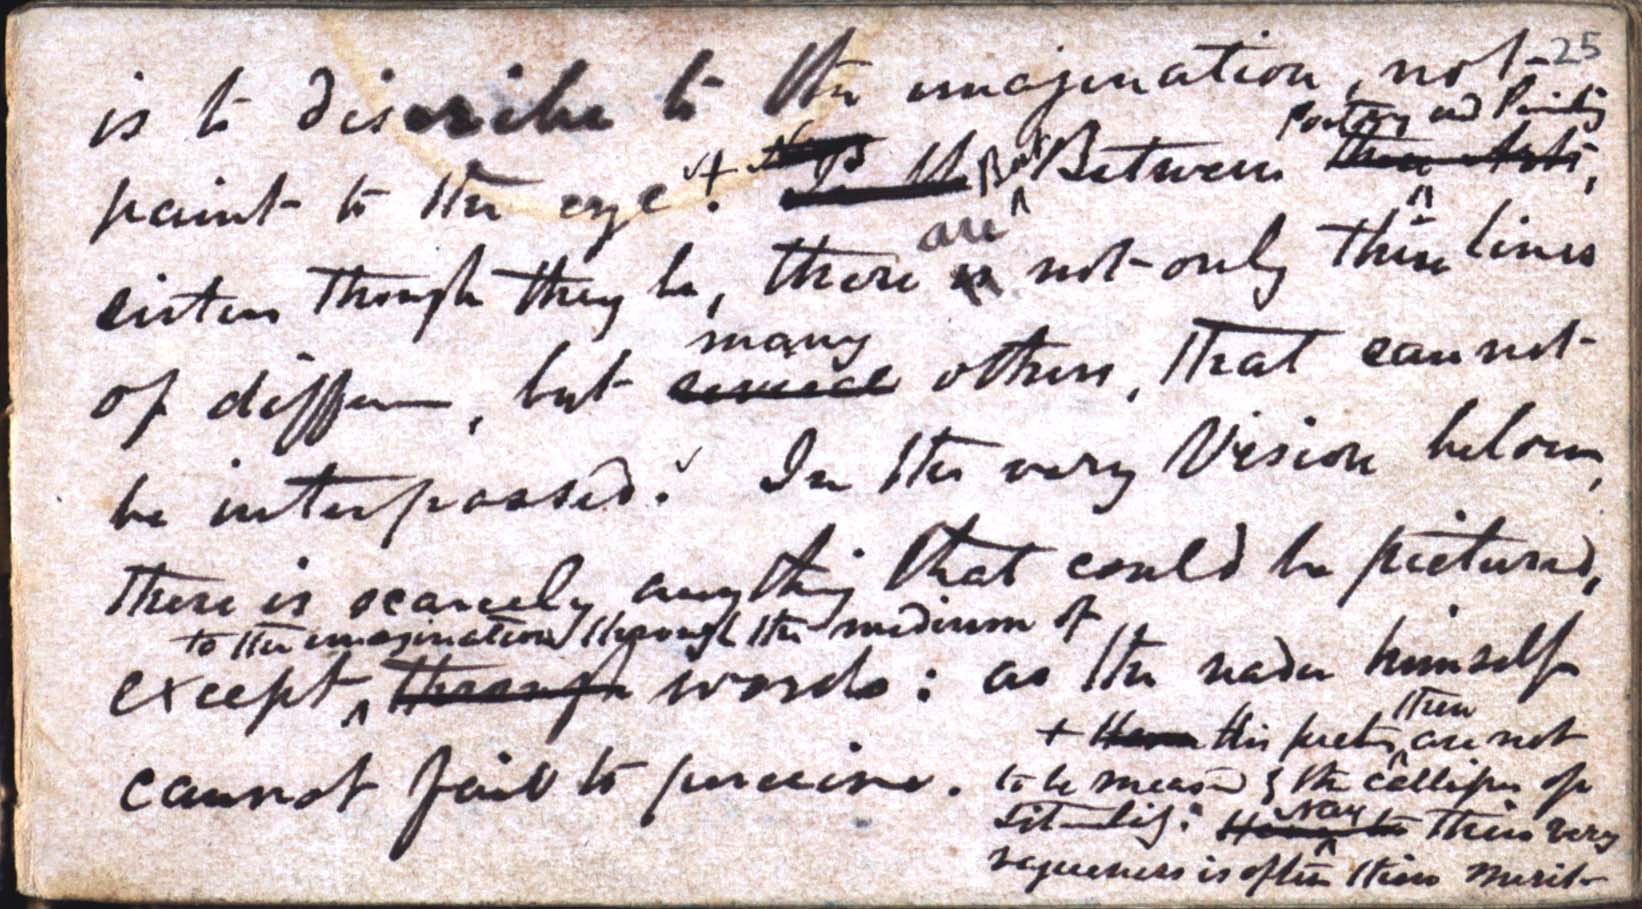 25
is to discribe to the imagination, not
Poetry and Painting
paint to the eye. + In th But Between these Arts,
are
sisters though they be, there is not only these lines
many
of differ, but several others, that cannot
be interpassed. In the very Vision below,
there is scarcely anything that could be pictured,
to the imagination through the medium of
except through words: as the reader himself
then
+ this poets are not
cannot fail to perceive.
to be meas the callipers of
Nay
their very
vagueness is often their merit